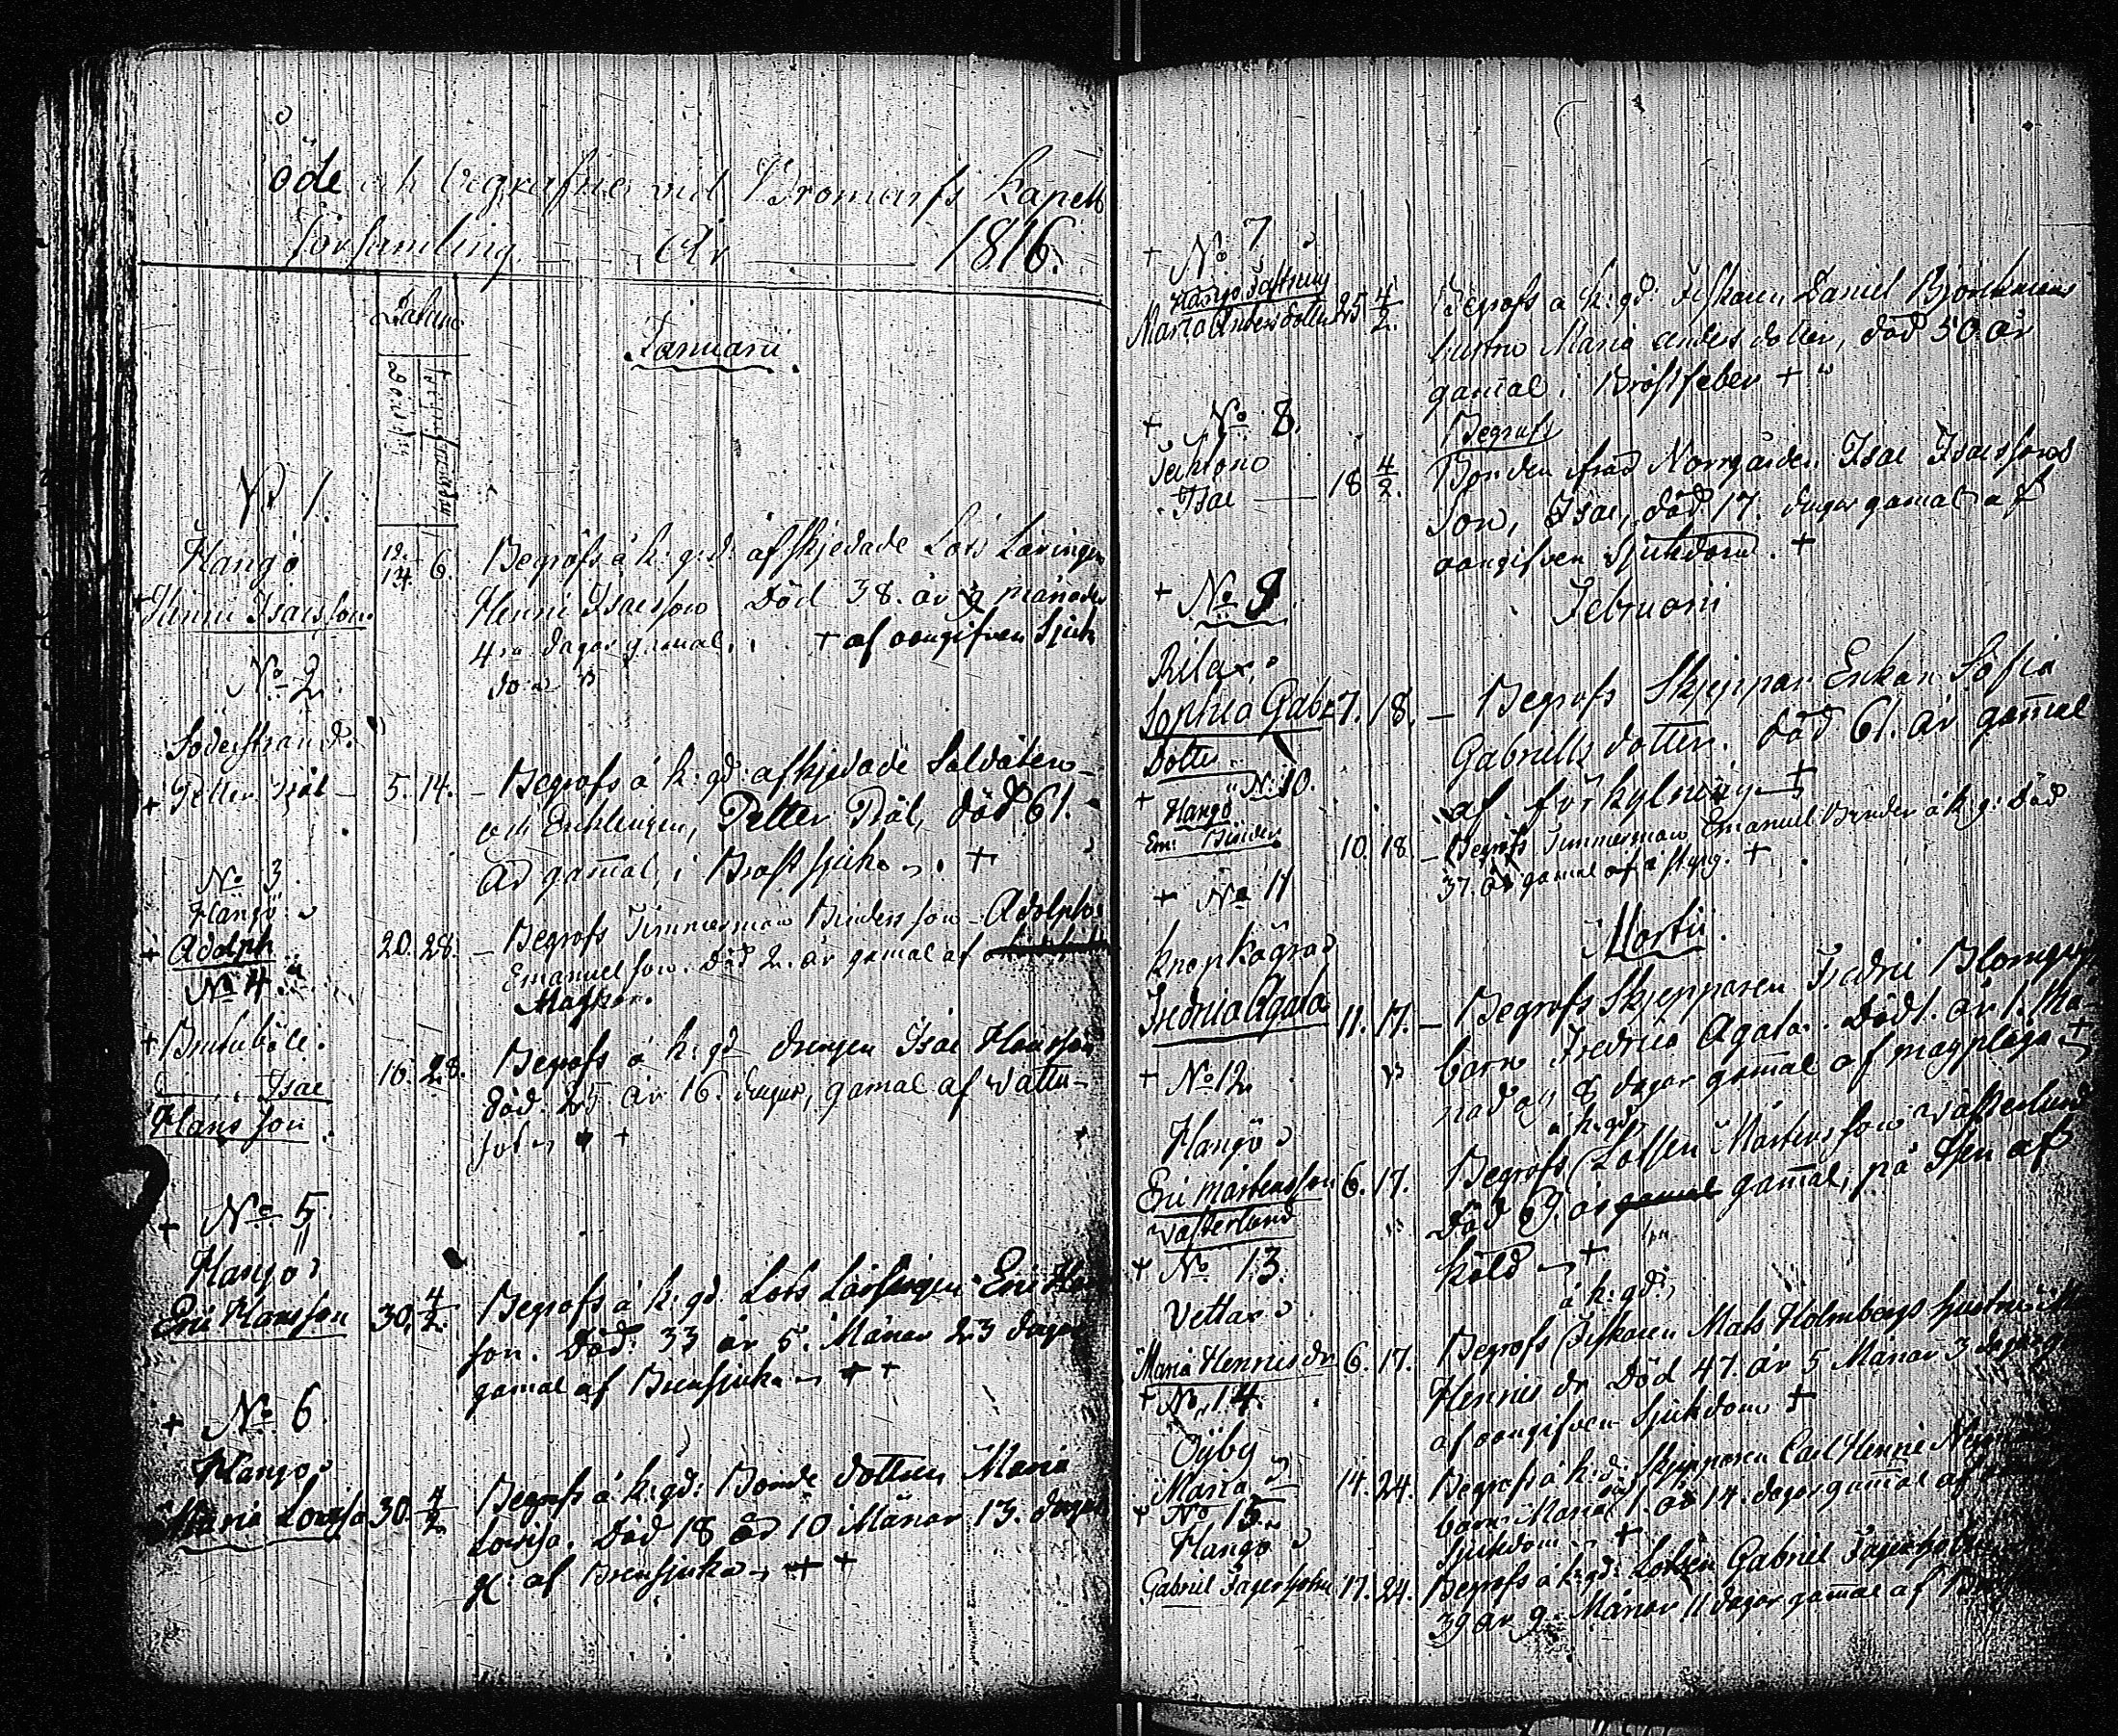 öde och begrafne vid Bromarfs Kapell
församling. År 1816.
Datum
Januarii.
Död
No 1.
Hangö
Henric Isacsson.
12.
14. 6. Begrofs å k: gd: afskjedade Lots Lärlingen
Henric Isacsson Död 38. år 9 månader
4ra dagar gamal. + af oangifven Sjuk
dom
No 2.
Söderstrand.
+ Petter Pål 5. 14. – Begrofs å k: gd: afskjedade Soldaten
och Enklingen, Petter Pål, död 61.
År gamal, i Bröstsjuka. +
No 3.
Hangö
+ Adolph 20. 28. – Begrofs Timmerman Binders son Adolph
Emanuelson. Död 2. år gamal af
Magkor.
No 4.
+ Brukuböle.
Isac
Hansson. 16. 28. Begrofs å k: gd drengen Isac Hansson
död. 25 år 16. dagar, gamal af Vattu-
sot +
+ No 5
Hangö
Eric Hansson 30. 4/2. Begrofs å k: gd. Lots Lärlingen Eric Han
son. Död. 33 år 5. Månar 23 dagar
gamal af Brensjuka + +
+ No 6.
Hangö
Maria Lovisa 30. 4/2 Begrofs å k: gd: Bonde dottren Maria
Lovisa. Död 18 år 10 Månar 13. dagar
g: af Brensjuka + +
+ No 7
Hangö Fästning
Maria Andersdotter 25 4/2. Begrofs å k: gd: Fiskaren Daniel Björkmans
hustru Maria anders dotter, död 50. år
gamal i Bröstfeber +
+ No 8.
Begrofs
Isac 18 4/2. Bonden ifrån Norrgården Isac Isacssons
Son, Isac, död 17. dagar gamal af
oangifven sjukdom. +
Februarii
+ No 9.
Rilax.
Sophia Gabr.
Dotter 7. 18. – Begrofs Skjeppar Enkan Sofia
Gabriells dotter. död 61. år gamal
af förkylning +
+ No: 10.
Hangö
Em: Binder 10. 18 – Begrofs Timmerman Emanuel Binder å k g: Död
37. år gamal af +
Martii.
+ No 11
Knopkägra
Fredrica Agata 11. 17. – Begrofs Skjepparen Fredric
barn Fredrica Agata. Död 1. år 1. Må-
nad och 8 dagar gamal af magplåga +
+ No 12.
Hangö
Eric Mårtensson
Västerlund 6. 17. å k: gd:
Begrofs Lotsen Mårtensson Västerlund
Död år gamal, på Isen af
köld +
+ No 13.
Vettar
Maria Henricsdr 6. 17. å k: gd:
Begrofs Fiskaren Mats Holmbergs hustru
Henrics dr Död 47. år 5 Månar 3 dagar g.
af oangifven Sjukdom +
+ No. 14.
Öyby
Maria 14. 24. Begrofs å k: gd: Skjepparen Carl Henric
barn Maria 1. år 14. dagar gamal af
Sjukdom +
+ No 15.
Hangö
Gabriel 17. 24. Begrofs å k: gd: Lotsen Gabriel
39 år 9 Månar 11 dagar gamal af